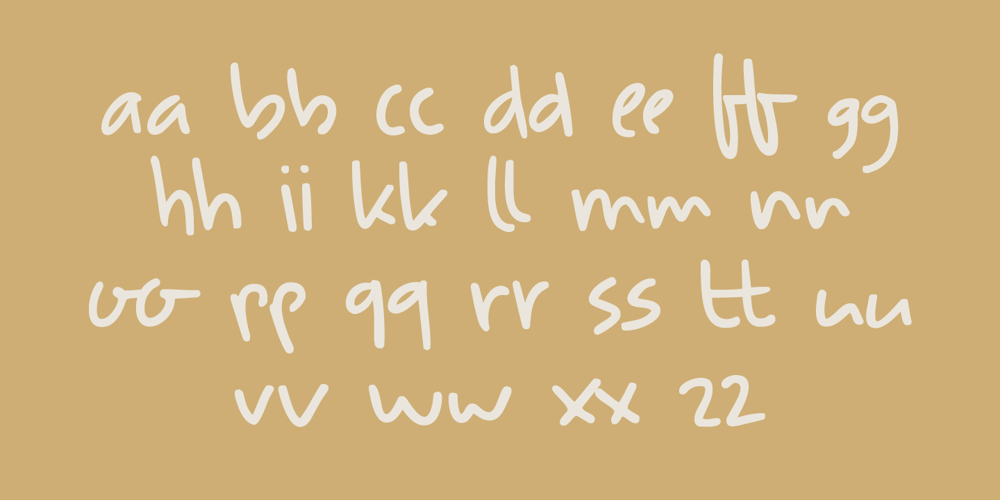 aa bb cc dd ee ff gg
hh ii kk ll mm nn
oo pp qq rr ss tt uu
vv ww xx 22